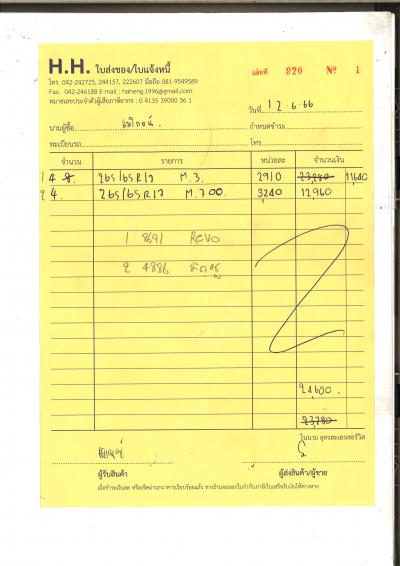 H.H. ใบส่งของ/ใบแจ้งหนี้
โทร. 042-242725, 244157, 222607 มือถือ 081-9549589
Fax. 042-246188 E-mail : haheng.1996@gmail.com
หมายเลขประจำตัวผู้เสียภาษีอากร : 0 4135 39000 36 1
เล่มที่ 920 Nº 1
วันที่ 12.6.66
นามผู้ซื้อ กำหนดชำระ
ทะเบียนรถ โทร
จำนวน รายการ หน่วยละ จำนวนเงิน
1 4 8. 265/65R17 M.3. 2910 23,280 11,640
2 4. 265/65R17 M.700. 3240 12,960
1 8691 Revo
2 4886
24,600.
23,280
ในนาม อุดรฮะเฮงเซอร์วิส
ผู้รับสินค้า ผู้ส่งสินค้า/ผู้ขาย
เมื่อชำระเงินสด หรือเช็คผ่านธนาคารเรียบร้อยแล้ว ทางร้านจะออกใบกำกับภาษี/ใบเสร็จรับเงินให้ต่างหาก